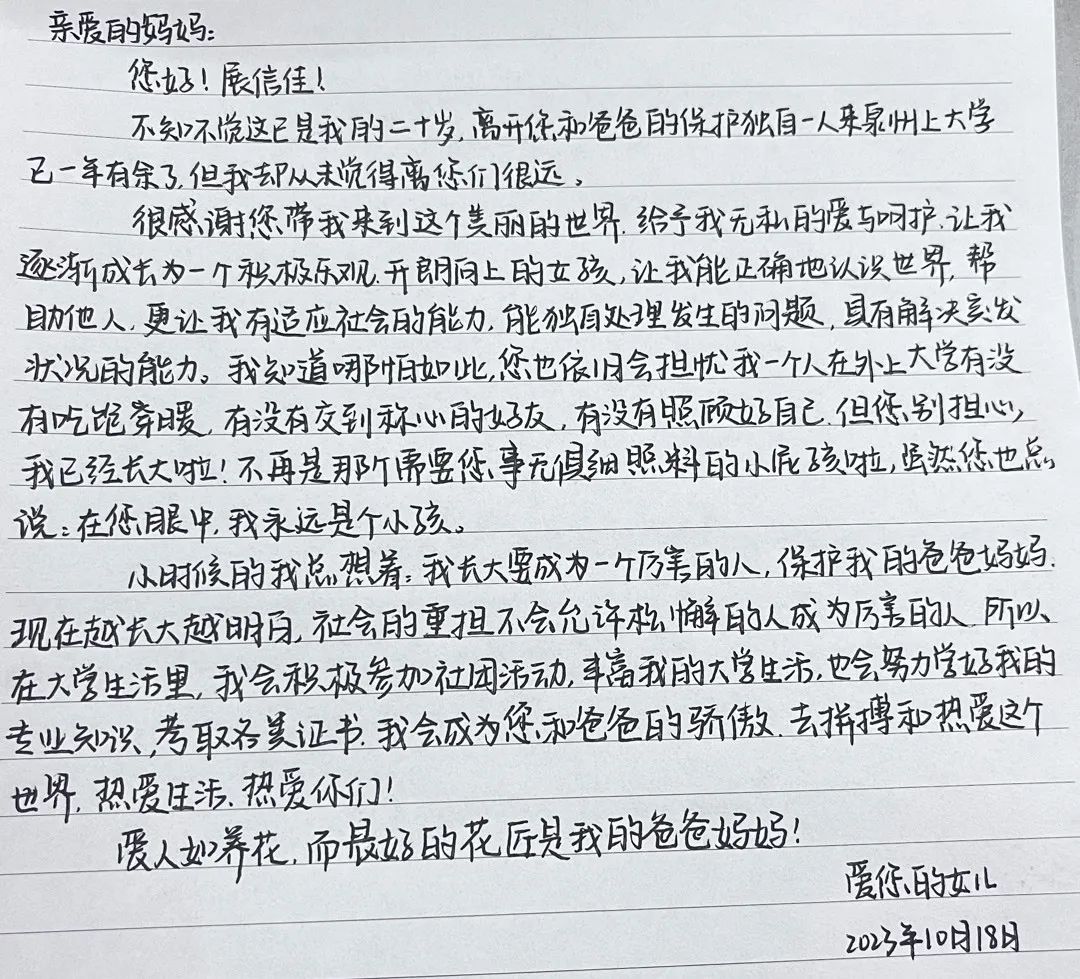 亲爱的妈妈:
您好!展信佳!
不知不觉这已是我的二十岁,离开您和爸爸的保护独自一人来泉州上大学
已一年有余了,但我却从未觉得离您们很远。
很感谢您带我来到这个美丽的世界,给予我无私的爱与呵护,让我
逐渐成长为一个积极乐观、开朗向上的女孩,让我能正确地认识世界,帮
助他人,更让我有适应社会的能力,能独自处理发生的问题,具有解决突发
状况的能力。我知道哪怕如此,您也依旧会担忧我一个人在外上大学有没
有吃饱穿暖,有没有交到称心的好友,有没有照顾好自己.但您别担心,
我已经长大啦!不再是那个需要您事无俱细照料的小屁孩啦,虽然您也总
说:在您眼中,我永远是个小孩。
小时候的我总想着:我长大要成为一个厉害的人,保护我的爸爸妈妈.
现在越长大越明白,社会的重担不会允许松懈的人成为厉害的人.所以
在大学生活里,我会积极参加社团活动,丰富我的大学生活,也会努力学好我的
专业知识,考取各类证书.我会成为您和爸爸的骄傲.去拼搏和热爱这个
世界,热爱生活、热爱你们!
爱人如养花,而最好的花匠是我的爸爸妈妈!
爱您的女儿
2023年10月18日